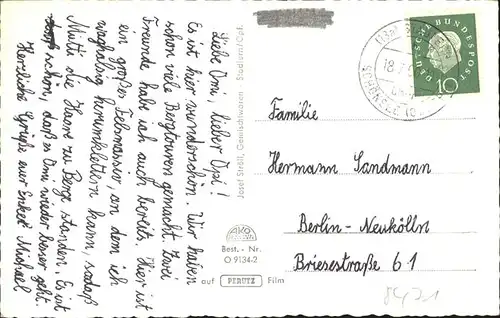 Liebe Omi, lieber Opi!
Es ist hier wunderschön. Wir haben
schon viele Bergtouren gemacht. Zwei
Freunde habe ich auch bereits. Hier ist
ein großes Felsmassiv, an dem ich
waghalsig herumklettern kann, sodaß
Mutti die Haare zu Berge standen. Es ist
schön, daß es Omi wieder besser geht.
Herzliche Grüße euer Enkel Michael
Josef Ströll, Gemischtwaren Stadlern/Opf.
AKO
Best.- Nr.
O 9134-2
auf PERUTZ Film
DEUTSCHE BUNDESPOST
10
18.7.
SCHÖNSEE
Familie
Hermann Sandmann
Berlin-Neukölln
Briesestraße 61